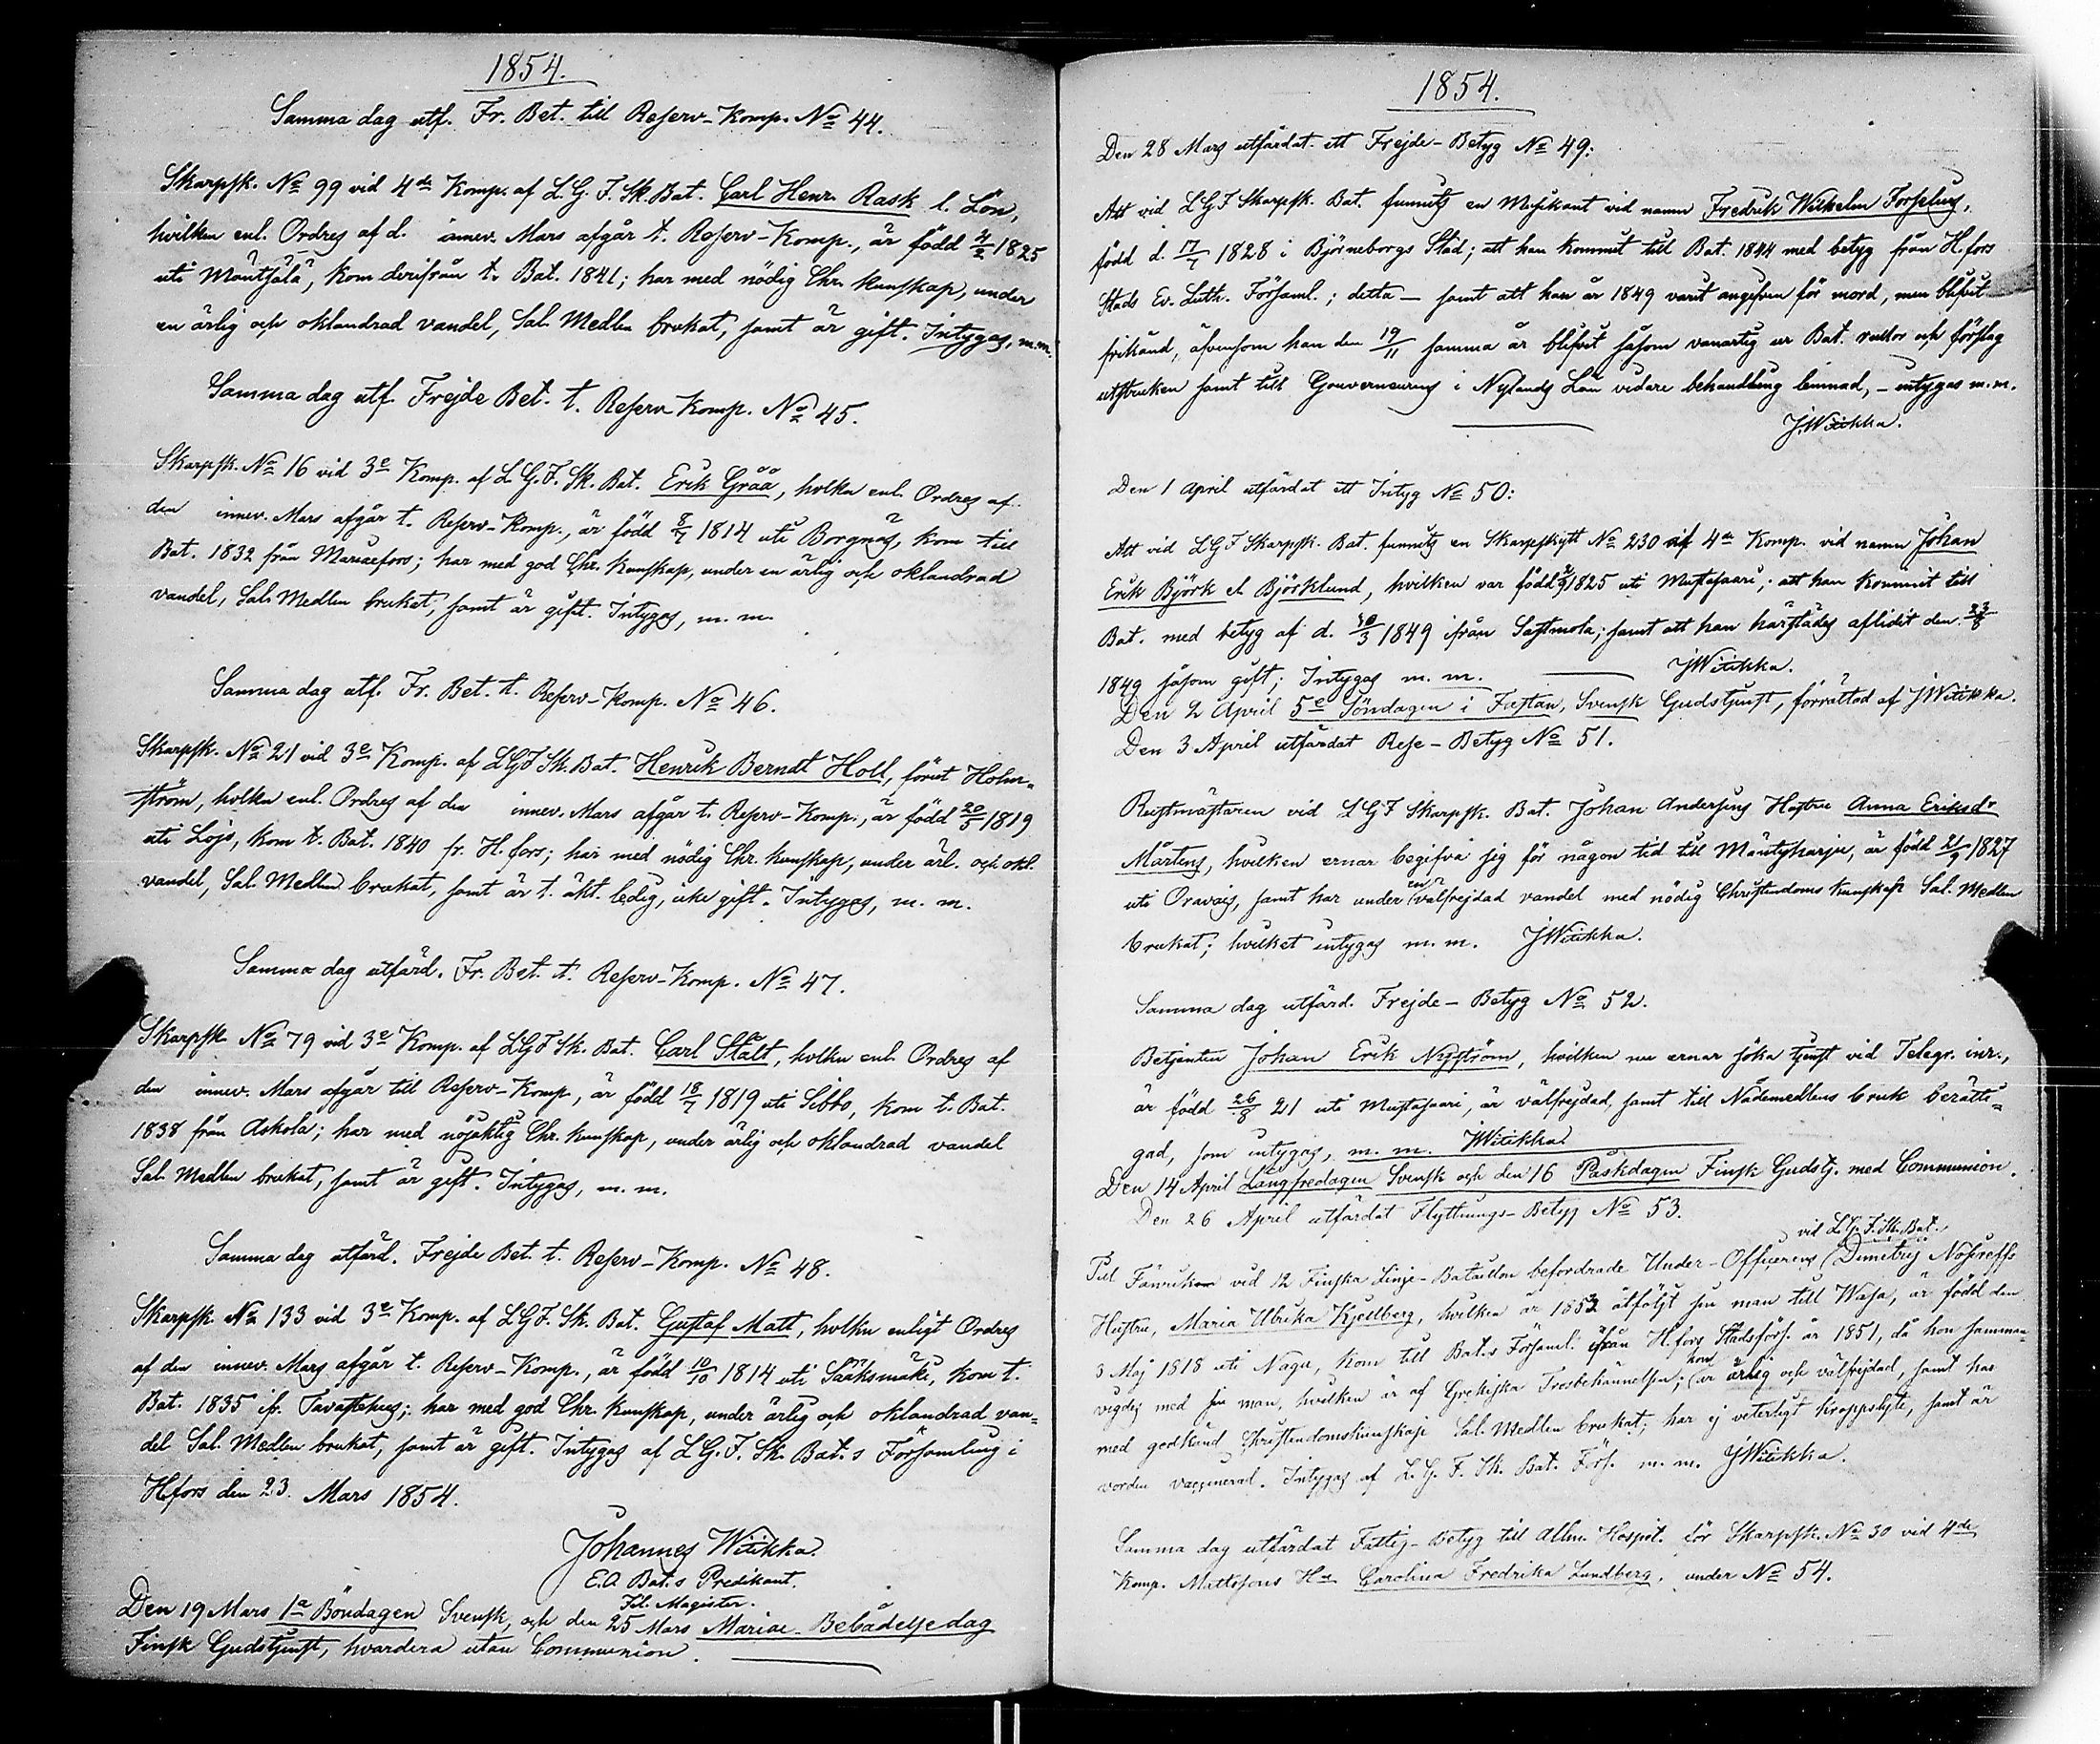 1854.
Samma dag utf. Fr. Bet. till Reserv-Komp. No 44.
Skarpsk. No 99 vid 4de Komp. af L. G. F. Sk. Bat. Carl Henr. Rask l. Lön,
hvilken enl. Ordres af d. innev. Mars afgår t. Reserv-Komp., är född 4/2 1825
uti Mäntsälä, kom derifrån t. Bat. 1841; har med nödig Chr. kunskap, under
en ärlig och oklandrad vandel, Sal. Medlen brukat, samt är gift. Intygas, m.m.
Samma dag utf. Frejde Bet. t. Reserv Komp. No 45.
Skarpsk. No 16 vid 3e Komp. af L. G. F. Sk. Bat. Erik Gråå, hvilken enl. Ordres af
den innev. Mars afgår t. Reserv-Komp., är född 8/7 1814 uti Borgnäs, kom till
Bat. 1832 från Mariaefors; har med god Chr. Kunskap, under en ärlig och oklandrad
vandel, Sal. Medlen brukat, samt är gift. Intygas, m. m.
Samma dag utf. Fr. Bet. t. Reserv-Komp. No 46.
Skarpsk. No 21 vid 3e Komp. af LGF Sk. Bat. Henrik Berndt Holl, förut Holm-
ström, hvilken enl. Ordres af den innev. Mars afgår t. Reserv-Komp., är född 20/5 1819
uti Lojo, kom t. Bat. 1840 fr. H. fors; har med nödig Chr. kunskap, under ärl. och okl.
vandel, Sal. Medlen brukat, samt är t. äkt. ledig, icke gift. Intygas, m. m.
Samma dag utfärd. Fr. Bet. t. Reserv-Komp. No 47.
Skarpsk. No 79 vid 3e Komp. af LGF Sk. Bat. Carl Stålt, hvilken enl. Ordres af
den innev. Mars afgår till Reserv-Komp., är född 18/7 1819 uti Sibbo, kom t. Bat.
1838 från Askola; har med nöjaktig Chr. kunskap, under ärlig och oklandrad vandel
Sal. Medlen brukat, samt är gift. Intygas, m. m.
Samma dag utfärd. Frejde Bet. t. Reserv-Komp. No 48.
Skarpsk. No 133 vid 3e Komp. af LGF. Sk. Bat. Gustaf Matt, hvilken enligt Ordres
af den innev. Mars afgår t. Reserv-Komp., är född 10/10 1814 uti Sääksmäki, kom t.
Bat. 1835 ifr. Tavastehus; har med god Chr. Kunskap, under ärlig och oklandrad van-
del Sal. Medlen brukat, samt är gift. Intygas af L. G. F. Sk. Bat.s Församling i
H.fors den 23. Mars 1854.
Johannes Witikka.
E.O. Bat.s Predikant.
Fil. Magister.
Den 19 Mars 1a Böndagen Svensk, och den 25 Mars Mariae-Bebådelsedag
Finsk Gudstjenst, hvardera utan Communion.
1854.
Den 28 Mars utfärdat ett Frejde-Betyg No 49:
Att vid LGF Skarpsk. Bat. funnits en Musikant vid namn Fredrik Wilhelm Forselius,
född d. 17/7 1828 i Björneborgs Stad; att han kommit till Bat. 1844 med betyg från H.fors
Stads Ev. Luth. Församl.; detta — samt att han år 1849 varit angifven för mord, men blifvit
frikänd, äfvensom han den 19/11 samma år blifvit såsom vanartig ur Bat. rullor och förslag
utstruken samt till Gouverneurens i Nylands Län vidare behandling lemnad, - intygas m. m.
J.Witikka.
Den 1 April utfärdat ett Intyg No 50:
Att vid LGF Skarpsk. Bat. funnits en Skarpskytt No 230 vid 4de Komp. vid namn Johan
Erik Björk el. Björklund, hvilken var född 1825 uti Mustasaari; att han kommit till
Bat. med betyg af d. 10/3 1849 ifrån Sastmola; samt att han härstädes aflidit den 23/8
1849 såsom gift; Intygas m. m. JWitikka.
Den 2 April 5e Söndagen i Fastan, Svensk Gudstjenst, förrättad af JWitikka.
Den 3 April utfärdat Rese-Betyg No 51.
Rustmästaren vid LGF Skarpsk. Bat. Johan Andersins Hustru Anna Eriksdr
Mårtens, hvilken ernar begifva sig för någon tid till Mäntyharju, är född 21/9 1827
uti Oravais, samt har under en välfrejdad vandel med nödig Christendoms kunskap Sal. Medlen
brukat; hvilket intygas m. m. JWitikka.
Samma dag utfärd. Frejde-Betyg No 52.
Betjenten Johan Erik Nyström, hvilken nu ernar söka tjenst vid Telegr. inr.,
är född 26/8 21 uti Mustasaari, är välfrejdad, samt till Nådemedlens bruk berätti-
gad, som intygas, m. m. JWitikka.
Den 14 April Långfredagen Svensk och den 16 Påskdagen Finsk Gudstj. med Communion.
Den 26 April utfärdat Flyttnings-Betyg No 53.
Till Fänrik vid 12 Finska Linje-Bataillon befordrade Under-Officerens vid L.G.F.Sk.Bat. Dimitrij Nosireffs
Hustru, Maria Ulrika Kjellberg, hvilken år 1852 åtföljt sin man till Wasa, är född den
3 Maj 1818 uti Nagu, kom till Bat.s Församl. ifrån H.fors Stadsförs. år 1851, då hon samman-
vigdes med sin man, hvilken är af Grekiska Trosbekännelsen; hon är ärlig och välfrejdad, samt har
med godkänd Christendomskunskap Sal. Medlen brukat; har ej veterligt kroppslyte, samt är
vorden vaccinerad. Intygas af L. G. F. Sk. Bat. Förs. m. m. JWitikka.
Samma dag utfärdat Fattig-Betyg till Allm. Hospit. för Skarpsk. No 30 vid 4de
Komp. Mattssons Hu Carolina Fredrika Lundberg, under No 54.